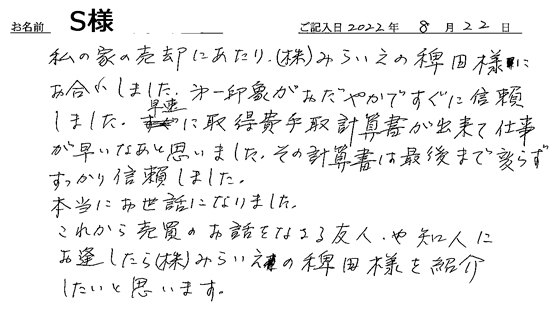 お名前 S様 ご記入日 2022年 8月 22日
私の家の売却にあたり、(株)みらいえの稗田様に
お合いしました。第一印象がおだやかですぐに信頼
しました。早速に取得費手取計算書が出来て仕事
が早いなあと思いました。その計算書は最後まで変らず
すっかり信頼しました。
本当にお世話になりました。
これから売買のお話をなさる友人、や知人に
お逢したら(株)みらいえの稗田様を紹介
したいと思います。